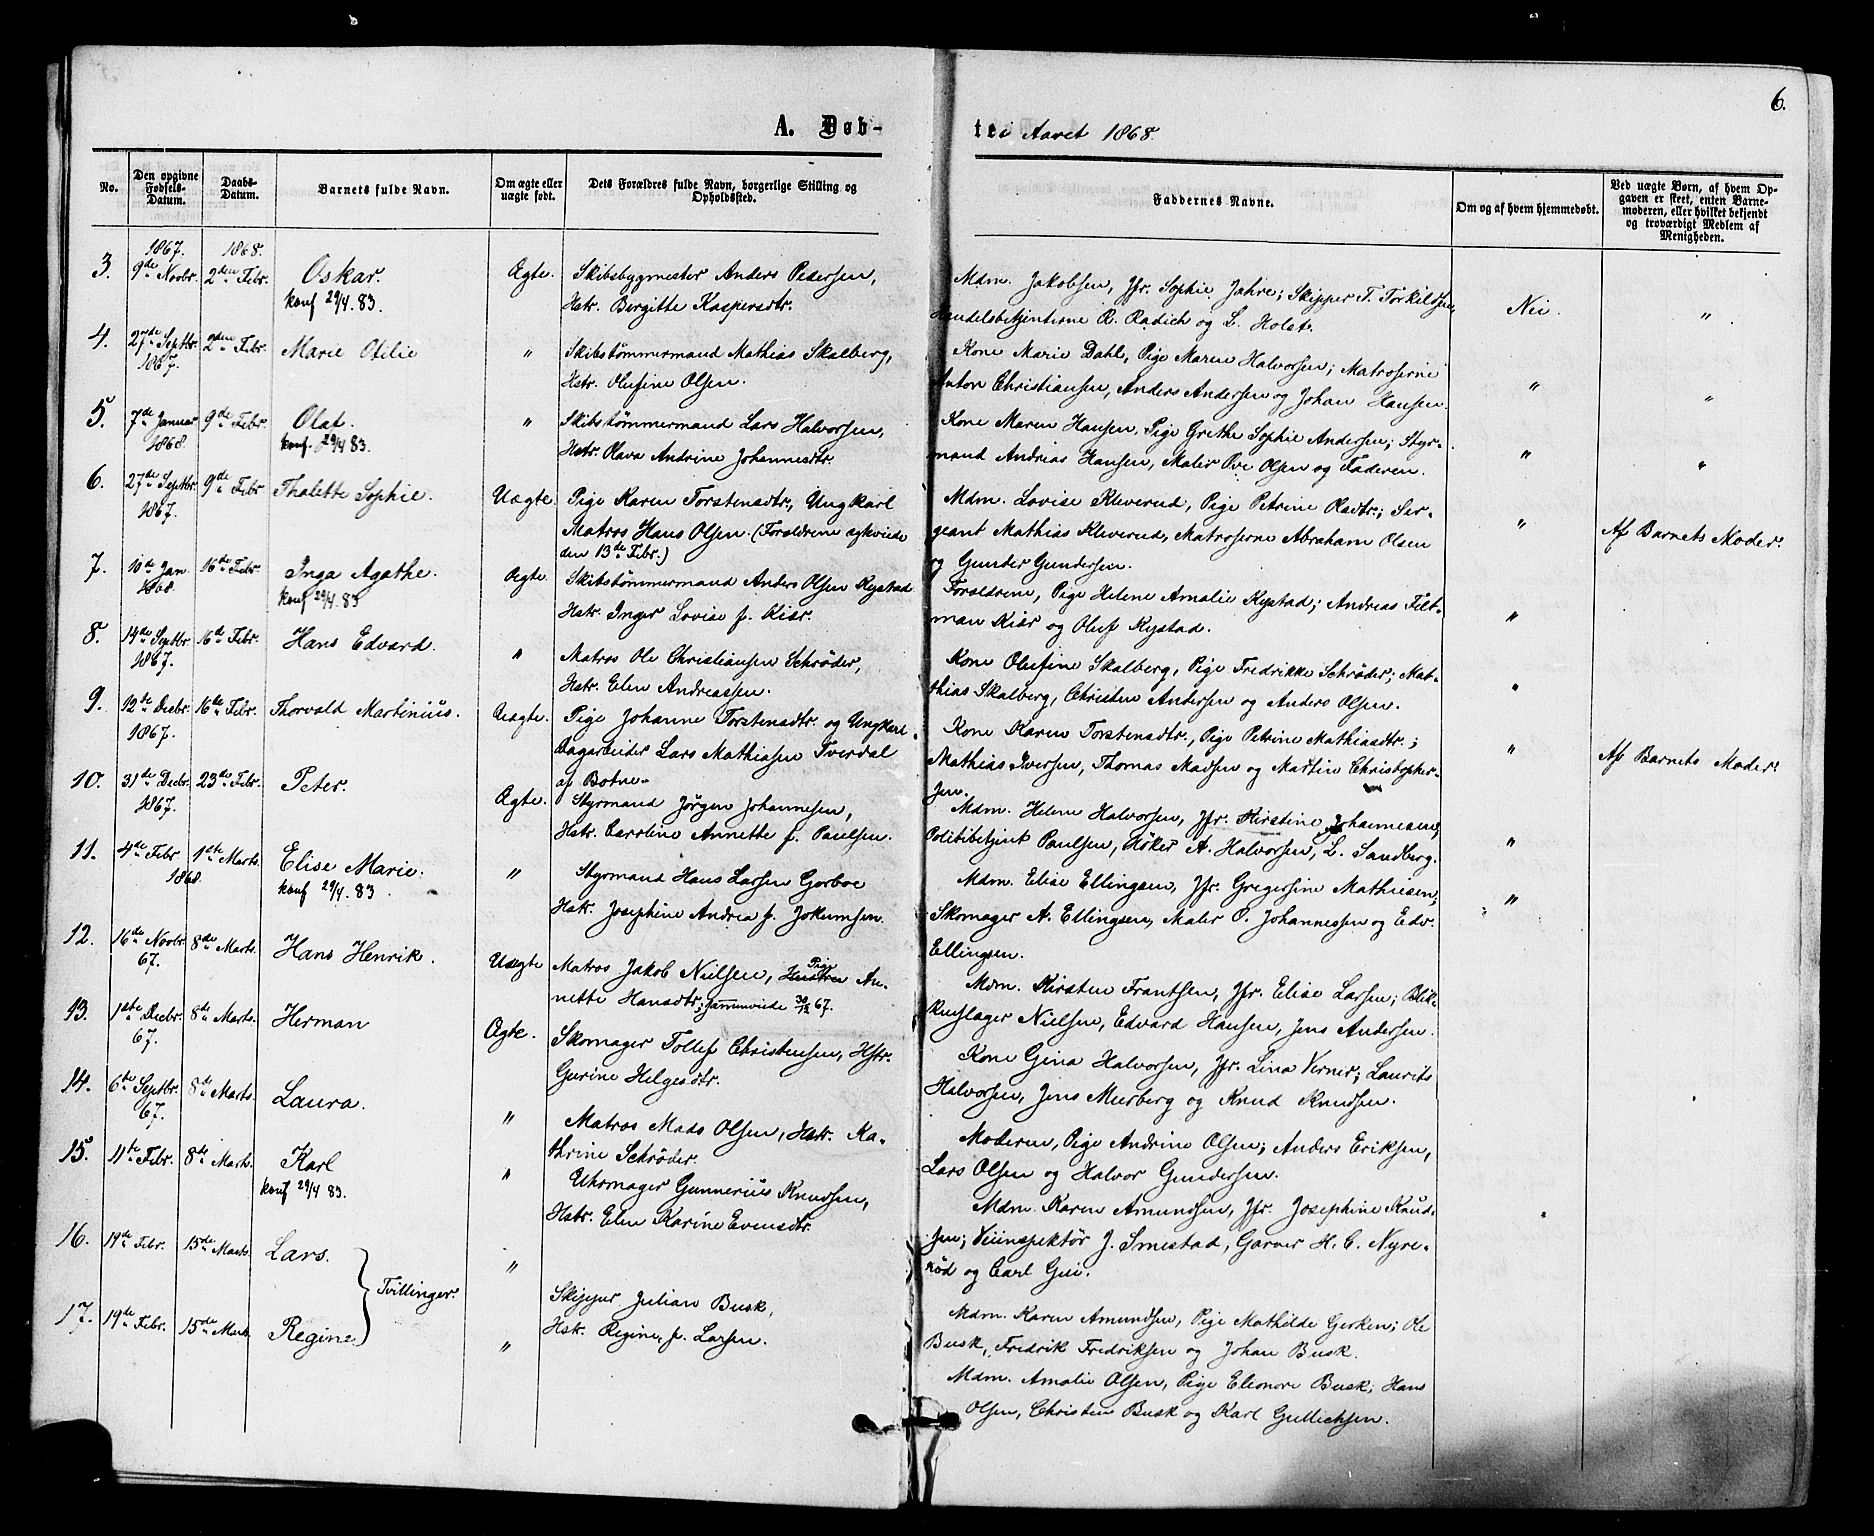 6.
A. Døb-
te i Aaret 1868.
No.
Den opgivne Fødsels-Datum.
Daabs-Datum.
Barnets fulde Navn.
Om ægte eller uægte født.
Dets Forældres fulde Navn, borgerlige Stilling og Opholdssted.
Faddernes Navne.
Om og af hvem hjemmedøbt.
Ved uægte Børn, af hvem Opgaven er skeet, enten Barnemoderen, eller hvilket bekjendt og troværdigt Medlem af Menigheden.
1867. 1868.
3. 9de Novbr. 2den Febr. Oskar. Ægte. Skibsbygmester Anders Pedersen,
konf 29/4. 83. Hstr. Bergitte Kaspersdtr.
Mdm. Jakobsen, Jfr. Sophie Jahre; Skipper T. Torkildsen,
Handelsbetjenterne R. Radich og L. Holst. Nei. "
4. 27de Septbr. 2den Febr. Marie Otilie " Skibstømmermand Mathias Skalberg,
1867. Hstr. Olufine Olsen.
Kone Marie Dahl, Pige Maren Halvorsen; Matroserne
Anton Christiansen, Anders Andersen og Johan Hansen. " "
5. 7de Januar 9de Febr. Olaf. " Skibstømmermand Lars Halvorsen,
1868 konf. 29/4. 83. Hstr. Olava Andrine Johannesdtr.
Kone Maren Hansen, Pige Grethe Sophie Andersen; Styr-
mand Andreas Hansen, Maler Ove Olsen og Faderen. " "
6. 27de Septbr. 9de Febr Thalette Sophie. Uægte. Pige Karen Torstensdtr., Ungkarl
1867. Matros Hans Olsen. (Forældrene ægteviede
den 13de Febr.)
Mdm. Lovise Kleverud, Pige Petrine Olsdtr.; Ser-
geant Mathias Kleverud, Matroserne Abraham Olsen
og Gunder Gundersen. " Af Barnets Moder.
7. 10de Jan 16de Febr Inga Agathe. Ægte. Skibstømmermand Anders Olsen Rystad
1868. konf 29/4. 83 Hstr. Inger Lovise f. Kiær.
Forældrene, Pige Helene Amalie Rystad; Andreas Tilt-
man Kiær og Oluf Rystad. "
8. 14de Septbr. 16de Febr. Hans Edvard. " Matros Ole Christiansen Schrøder,
1867. Hstr. Elen Andreassen.
Kone Olufine Skalberg, Pige Fredrikke Schrøder; Mat-
thias Skalberg, Christen Andersen og Anders Olsen. "
9. 12te Decbr. 16de Febr. Thorvald Martinius. Uægte. Pige Johanne Torstensdtr. og Ungkarl
1867. Dagarbeider Lars Mathiasen Tverdal
af Botne.
Kone Karen Torstensdtr., Pige Petrine Mathiasdtr.;
Mathias Iversen, Thomas Madsen og Martin Christopher-
sen. " Af Barnets Moder.
10. 31te Decbr. 23de Febr. Peter. Ægte. Styrmand Jørgen Johannesen,
1867. Hstr. Caroline Annette f. Paulsen.
Mdm. Helene Halvorsen, Jfr. Kirstine Johannesen,
Politibetjent Paulsen, Høker A. Halvorsen, L. Sandberg. "
11. 4de Febr 1ste Marts. Elise Marie. " Styrmand Hans Larsen Gorboe
1868. konf 29/4. 83 Hstr. Josephine Andrea f. Jokumsen.
Mdm. Elise Ellingsen, Jfr. Gregersine Mathiesen,
Skomager A. Ellingsen, Maler O. Johannessen og Edv.
Ellingsen. "
12. 16de Novbr. 8de Marts. Hans Henrik. Uægte Matros Jakob Nielsen, Pige An-
67. nette Hansdtr; sammenviede 30/12 67.
Mdm. Kirsten Frantsen, Jfr. Elise Larsen; Blik-
kenslager Nielsen, Edvard Hansen, Jens Andersen.
13. 1ste Decbr. 8de Marts. Herman Ægte. Skomager Tollef Christensen, Hstr.
67. Gurine Helgesdtr.
Kone Gina Halvorsen, Jfr. Lina Verner; Laurits
Halvorsen, Jens Muerberg og Knud Knudsen.
14. 6te Septbr. 8de Marts. Laura. " Matros Mads Olsen, Hstr. Ka-
67. thrine Schrøder.
Moderen, Pige Andrine Olsen; Anders Eriksen,
Lars Olsen og Halvor Gundersen.
15. 11te Febr. 8de Marts. Karl " Uhrmager Gunnerius Knudsen,
konf 29/4 83. Hstr. Elen Karine Evensdtr.
Mdm. Karen Amundsen, Jfr. Josephine Knud-
sen; Veiinspektør J. Smestad, Garver H. C. Nyre-
rød og Carl Gui.
16. 19de Febr. 15de Marts. Lars. "
Tvillinger.
Skipper Julian Busk,
Hstr. Regine, f. Larsen.
17. 19de Febr. 15de Marts. Regine. "
Mdm. Karen Amundsen, Pige Mathilde Gerken; Ole
Busk, Fredrik Fredriksen og Johan Busk.
Mdm. Amalie Olsen, Pige Eleonore Busk; Hans
Olsen, Christen Busk og Karl Gullichsen.